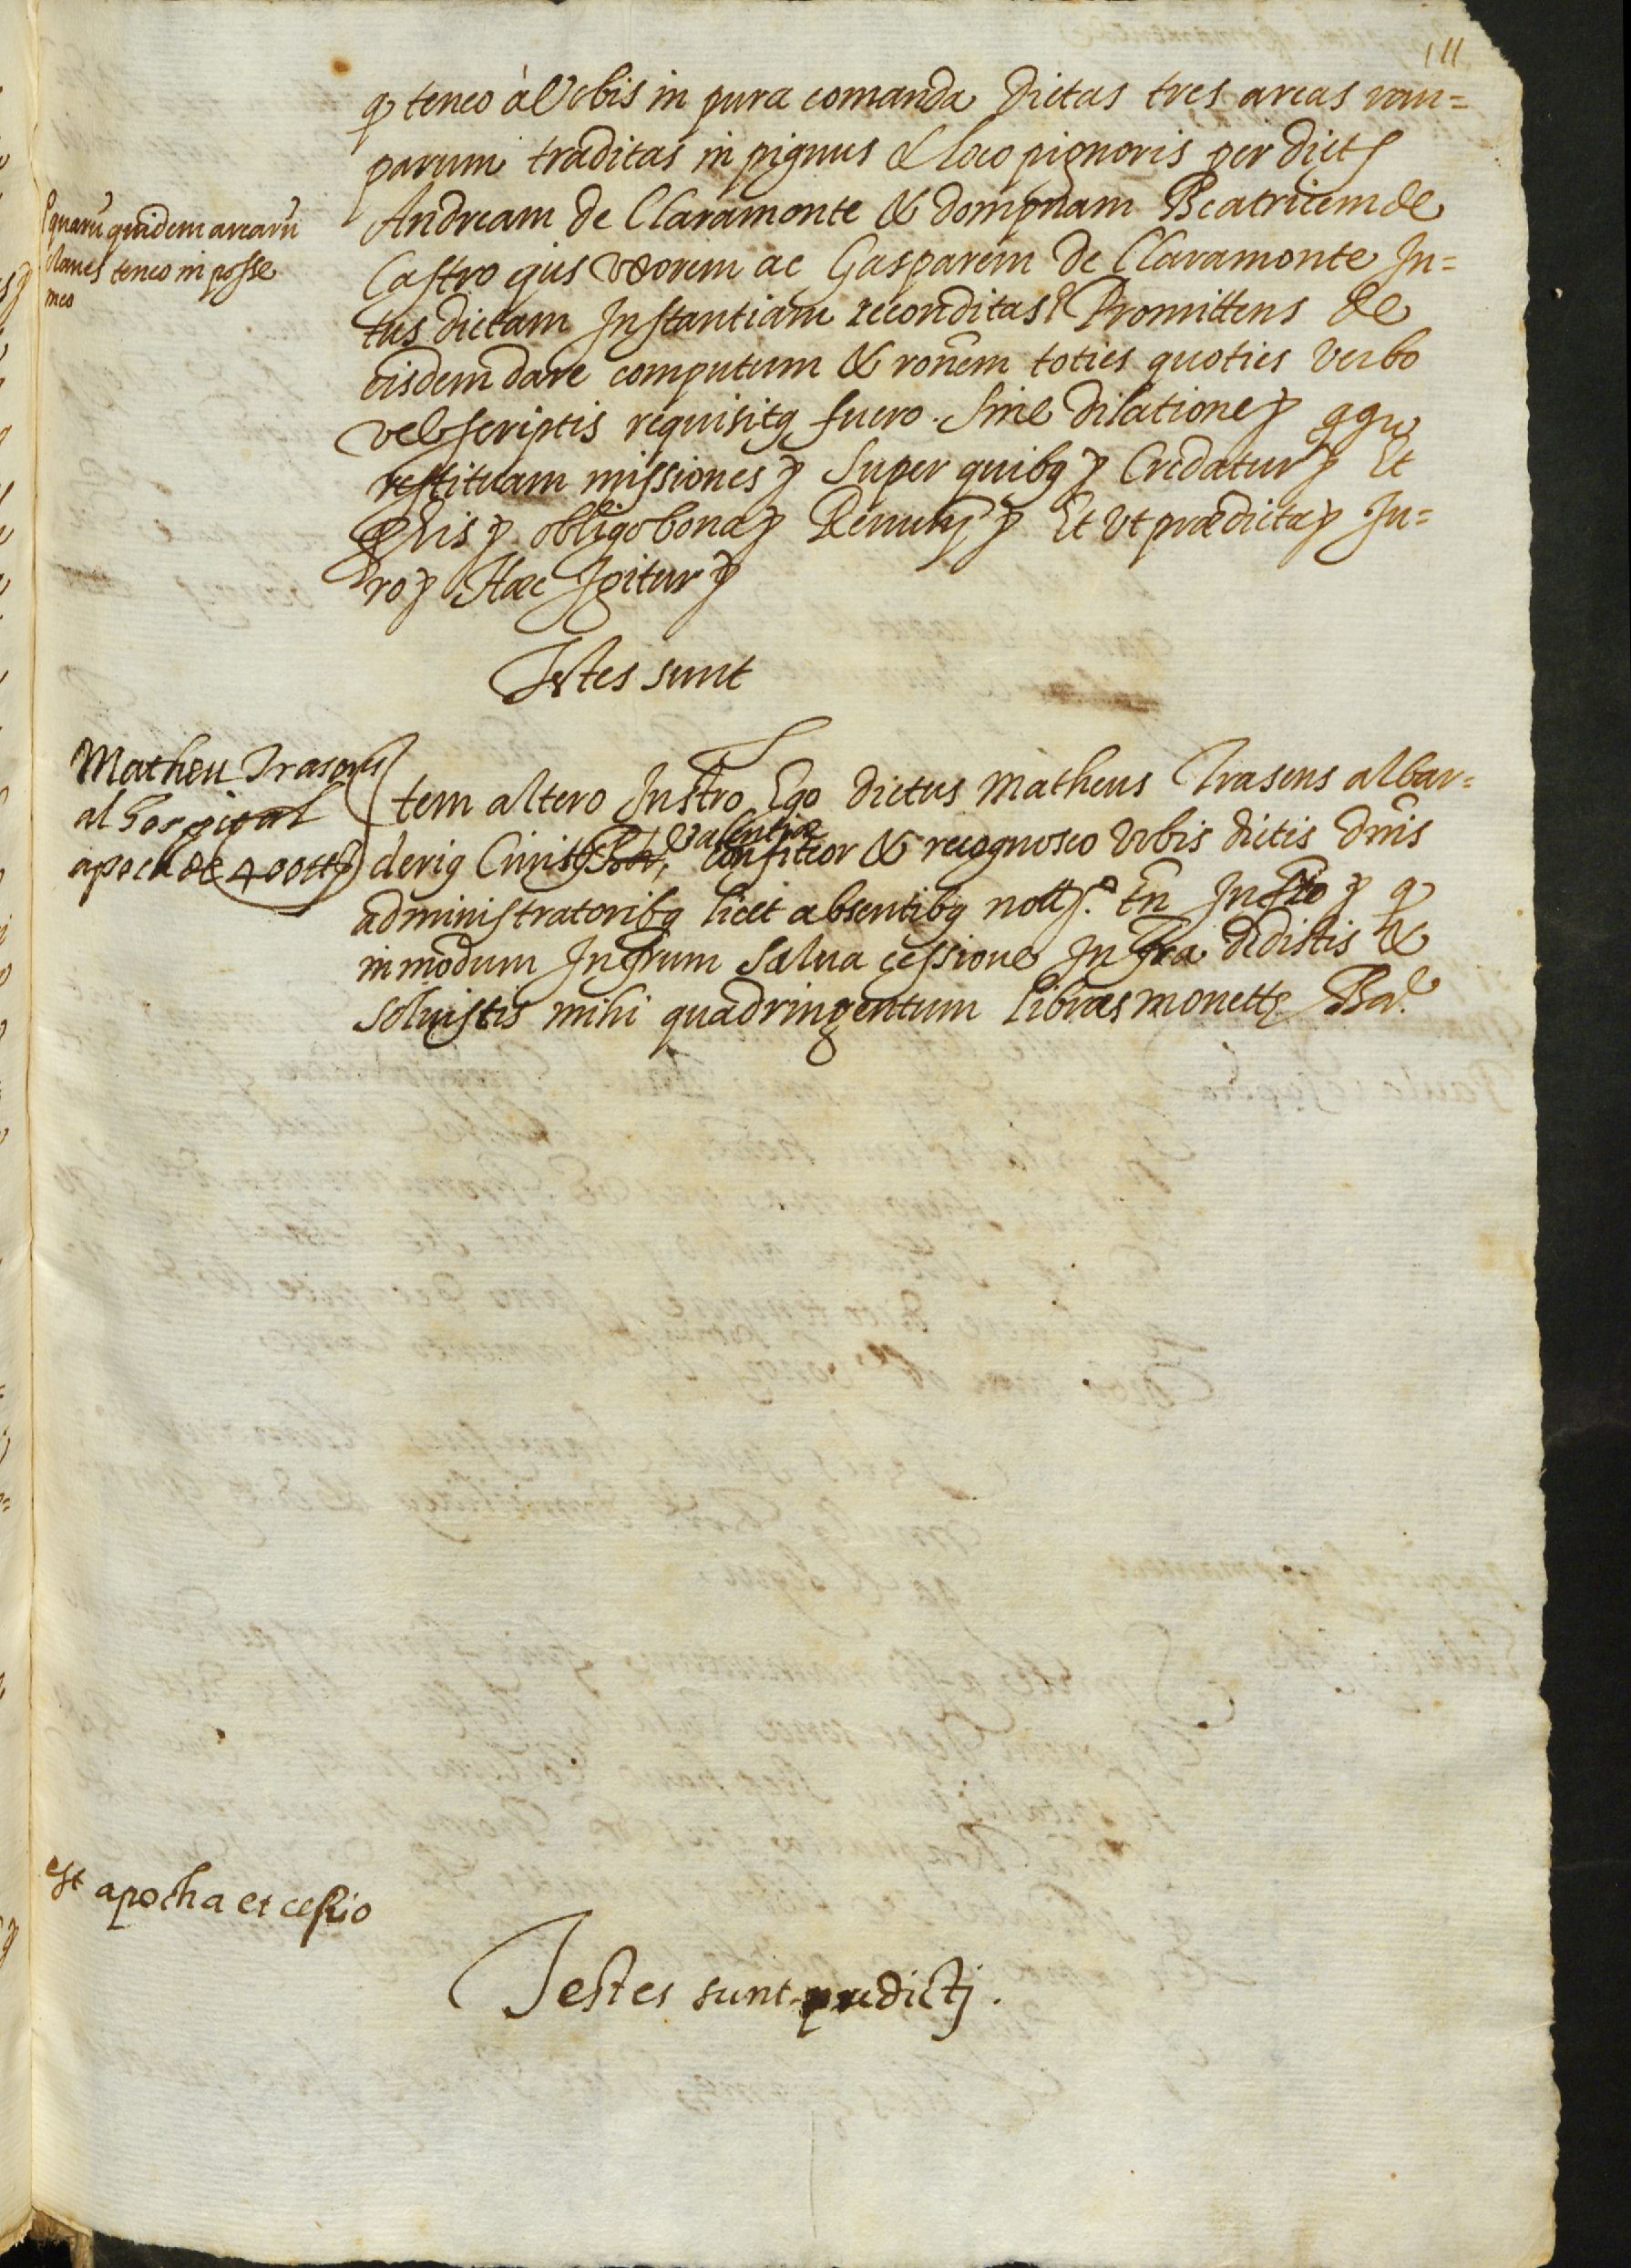 111
q teneo à Vobis in pura comanda dictas tres arcas rau=
parum traditas in pignus & loco pignoris per dict
Andream de Claramonte & dompnam Beatricem de
Castro ejus Vxorem ac Gasparem de Claramonte In=
tus dictam Instantiam reconditas Promittens de
eisdem dare computum & ronem toties quoties verbo
vel scriptis requisitq fuero. Sine dilatione
restituam missiones Super quibq Credatur Et
obligo bona Et Vt prædicta Ju=
ro Hæc Igitur
quarū quidem arcarū
claues teneo in posse
meo
Testes sunt
Matheu Trasens
al hospital
apoca de 400
Item altero Instro Ego dictus Matheus Trasens albar=
deriq Ciuis Valentiæ confiteor & recognosco Vobis dictis dnis
administratoribq licet absentibq not. En Insto q
in modum Infrum salua cessione Infra dedistis &
soluistis mihi quadringentum libras monette Bar.
est apocha et cessio
Testes sunt predictj.